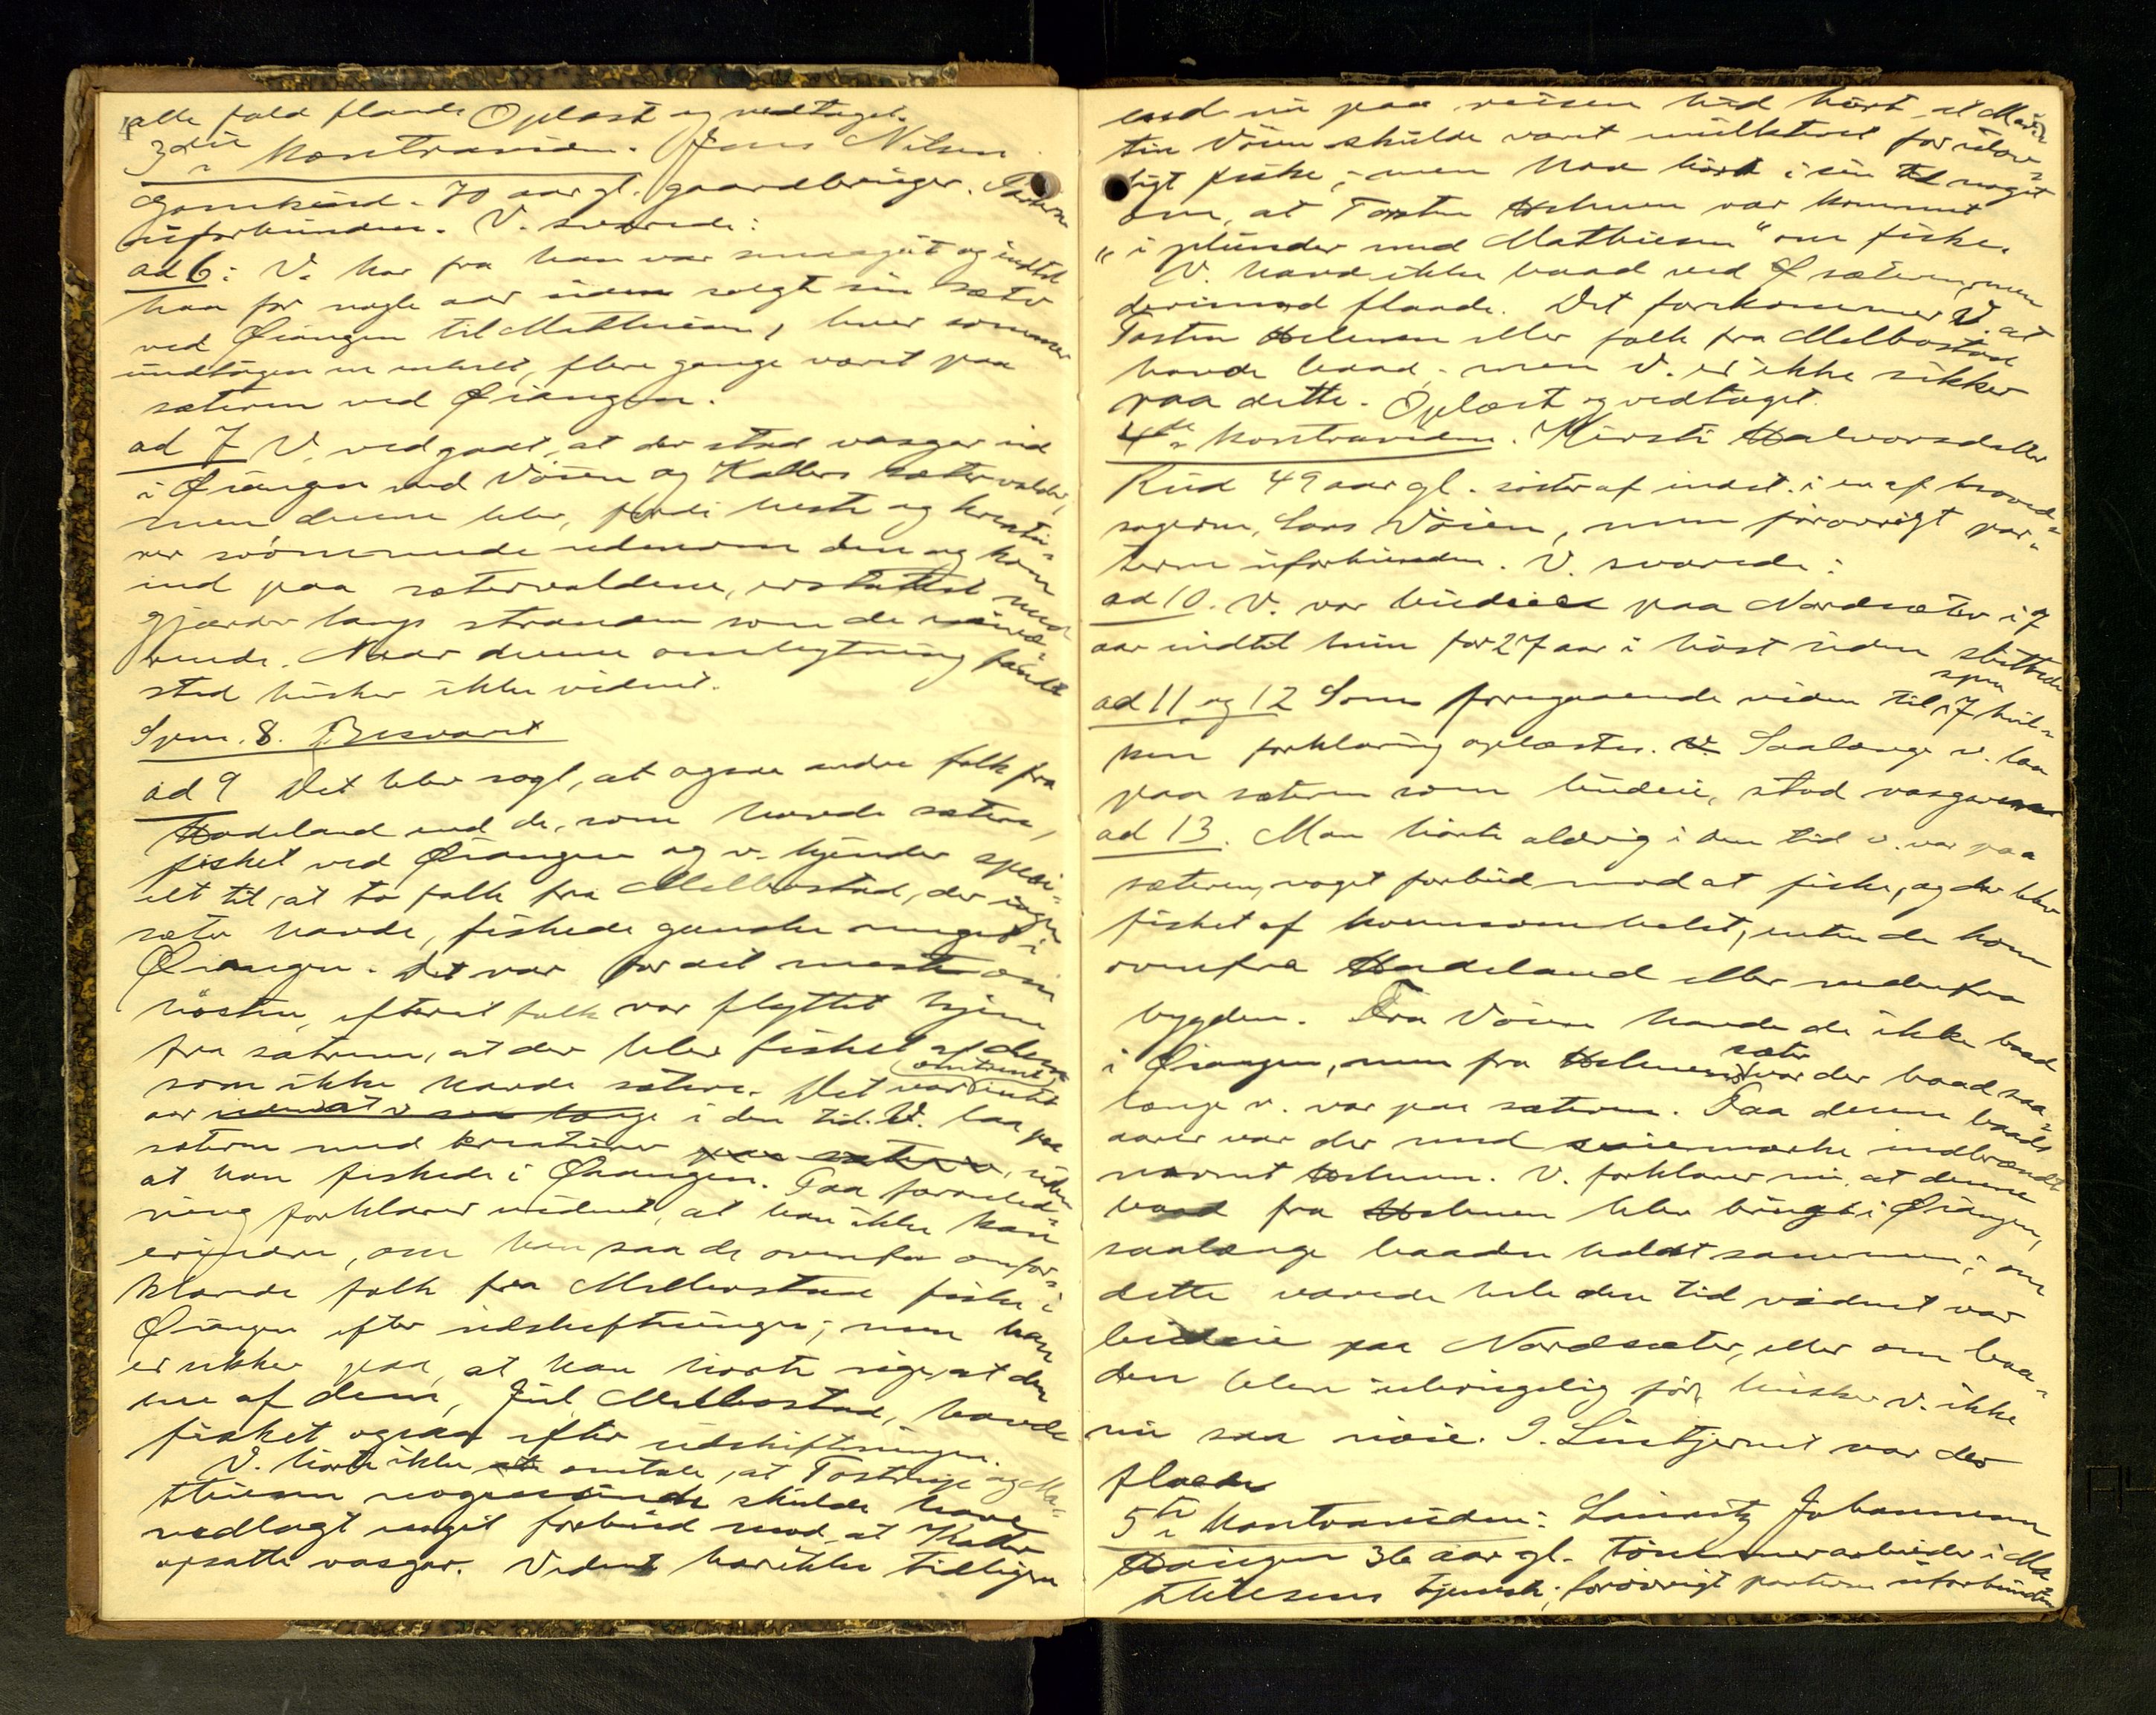 alle fald flaade Oplæst og vedtaget.
3die Kontravidne. Jens Nilsen
70 aar gl. gaardbruger. Parterne
uforbunden. V. svarede:
ad 6: V. har fra han var smaagut og indtil
han for nogle aar siden solgte sin sæter
ved Øiangen til Mathiesen, hver sommer
undtagen en enkelt, flere gange været paa
sæteren ved Øiangen.
ad 7 V. ved godt, at der stod vasgar ud
i Øiangen ved Vöien og Kallers sætervolder,
men denne blev, fordi heste og kreatu-
rer svömmede udenom den og kom
ind paa sætervoldene, erstattet med
gjærder langs stranden som de nuvæ-
rende. Naar denne ombytning fandt
sted husker ikke vidnet.
Spm. 8. Besvaret
ad 9 Det blev sagt, at ogsaa andre folk fra
Hadeland end de, som havde sætere,
fisket ved Øiangen og v. kjender speci-
elt til, at to folk fra Melbostad, der ingen
sæter havde, fiskede ganske meget i
Øiangen. Det var for det meste om
hösten, efterat folk var flyttet hjem
fra sætrene, at der blev fisket af dem
som ikke havde sætere. Det var omtrent intet
aar i den tid. V. laa paa
sæteren med kreaturer, uden
at han fiskede i Øiangen. Paa foranled-
ning forklarer vidnet, at han ikke kan
erindre, om han saa de ovenfor omfor-
klarede folk fra Melbostad fiske i
Øiangen efter udskiftningen; men han
er sikker paa, at han hörte sige, at den
ene af dem, Jul Melbostad, havde
fisket ogsaa efter udskiftningen.
V. hörte ikke omtale, at Tostrup og Ma-
thiesen nogensinde skulde have
nedlagt noget forbud mod at Kaller
opsatte vasgar. Vidnet har ikke tidligere
end nu paa reisen hid hört, at Mar-
tin Vöien skulde været mulkteret for ulov-
ligt fiske; men har hört i sin tid noget
om, at Tosten Helmen var kommet
"i plunder med Mathiesen" om fiske.
V. havde ikke baad ved sæteren, men
derimod flaade. Det forekommer V. at
Tosten Helmen eller folk fra Melbostad
havde baad; men V. er ikke sikker
paa dette. Oplæst og vedtaget.
4de Kontravidne. Kirsti Halvorsdatter
Rud 49 aar gl. söster af indst. i en af hoved-
sagerne, Lars Vöien, men forövrigt par-
terne uforbunden. V. svarede:
ad 10. V. var budeie paa Nordsæter i 7
aar indtil hun for 27 aar i höst siden sluttede
ad 11 og 12 Som foregaaende viden til spm 7 hvil-
ken forklaring oplæstes. Saalænge v. laa
paa sæteren som budeie, stod vasgaren
ad 13. Man hörte aldrig i den tid v. var paa
sæteren, noget forbud mod at fiske, og der blev
fisket af hvemsomhelst, enten de kom
ovenfra Hadeland eller nedenfra
bygden. Fra Vöien havde de ikke baad
i Øiangen, men fra Helmens sæter var der baad saa-
længe v. var paa sæteren. Paa denne baads
aarer var der med eiermærke indbrændt
navnet Helmen. V. forklarer nu, at denne
baad fra Helmen blev brugt i Øiangen,
saalænge baaden holdt sammen; om
dette varede hele den tid vidnet var
budeie paa Nordsæter, eller om baa-
den blev ubrugelig för, husker v. ikke
nu saa nöie. I Sintjernet var der
flaade
5te Kontravidne: Johannesen
Haugen 36 aar gl. tömmerarbeider i Ma-
thiesens tjeneste; forövrigt parterne uforbunden